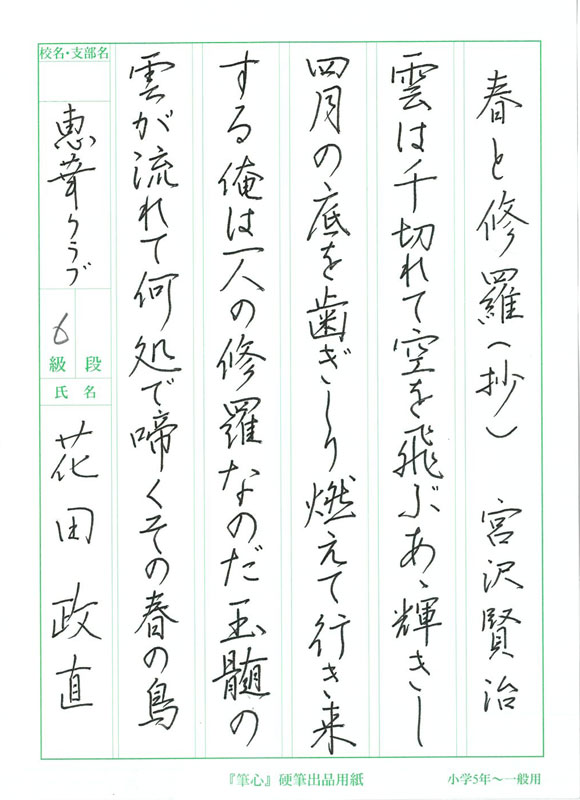 春と修羅(抄) 宮沢賢治
雲は千切れて空を飛ぶあゝ輝きし
四月の底を歯ぎしり燃えて行き来
する俺は一人の修羅なのだ玉髄の
雲が流れて何処で啼くその春の鳥
校名・支部名
恵華クラブ
6
級 段
氏 名
花田政直
『筆心』硬筆出品用紙
小学5年〜一般用